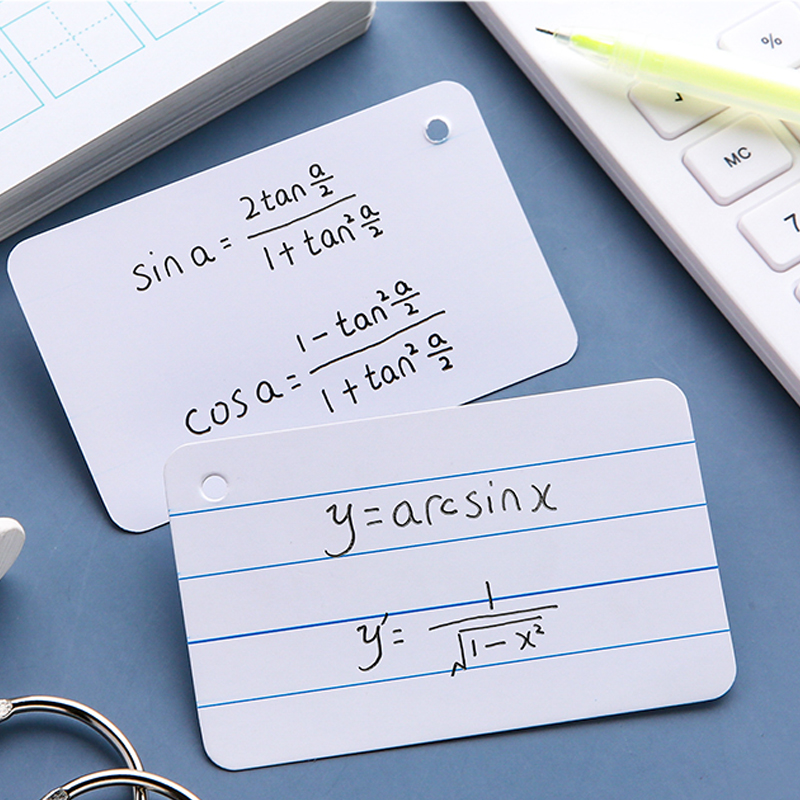 %
✓
MC
7
sin a = \frac{2 tan \frac{a}{2}}{1 + tan² \frac{a}{2}}
cos a = \frac{1 - tan² \frac{a}{2}}{1 + tan² \frac{a}{2}}
y = arcsin x
y' = \frac{1}{\sqrt{1 - x²}}